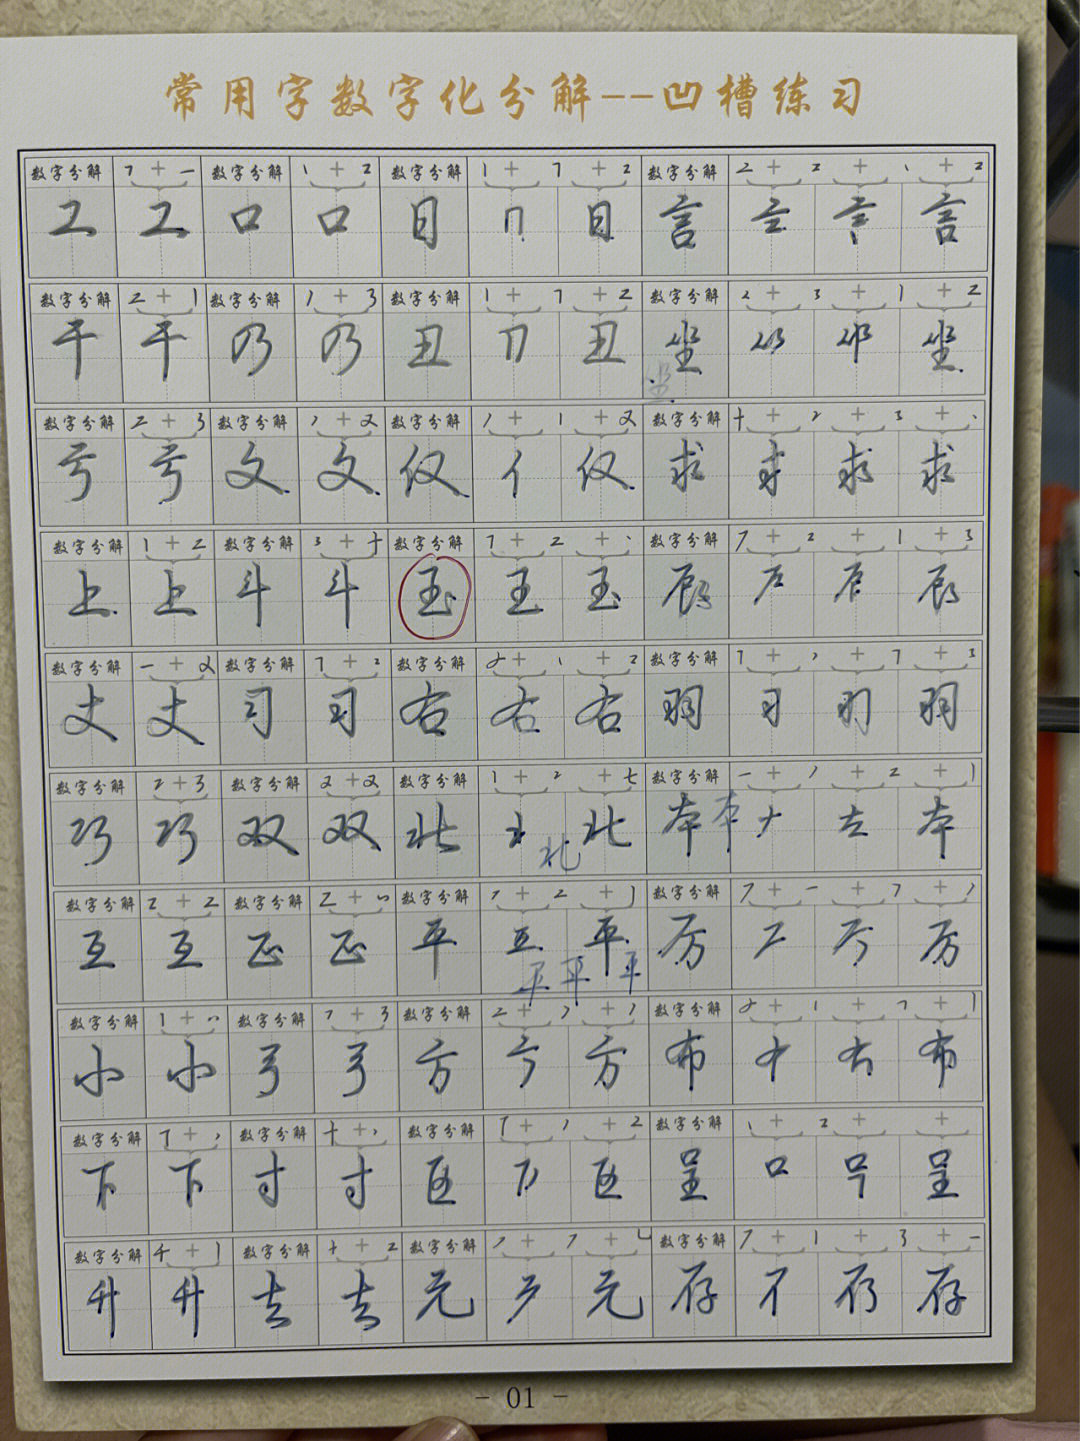 常用字数字化分解--凹槽练习
数字分解 7 + 一 数字分解 1 + 2 数字分解 1 + 7 + 2 数字分解 2 + 2 + 、 + 2
工 工 口 口 目 目 言 言
数字分解 2 + 1 数字分解 丿 + 3 数字分解 1 + 7 + 2 数字分解 2 + 3 + 1 + 2
干 干 乃 乃 丑 丑 坐 坐
坐
数字分解 2 + 3 数字分解 + 又 数字分解 丿 + 1 + 又 数字分解 十 + 2 + 3 + 、
亏 亏 文 文 仅 亻 仅 求 求 求
数字分解 1 + 2 数字分解 3 + 十 数字分解 7 + 2 + 、 数字分解 7 + 2 + 1 + 3
上 上 斗 斗 玉 王 玉
数字分解 一 + 数字分解 7 + 2 数字分解 + 、 + 2 数字分解 7 + + 7 + 3
丈 丈 司 司 右 右 右 羽 习 羽
数字分解 2 + 3 数字分解 又 + 又 数字分解 1 + 2 + 七 数字分解 一 + 丿 + 2 + 1
巧 巧 双 双 北 北 本 本 本
北
数字分解 2 + 2 数字分解 2 + 数字分解 + 2 + 1 数字分解 7 + 一 + 7 + 丿
互 互 正 正 平 平 厉 厂 厉
平 平 平
数字分解 1 + 数字分解 7 + 3 数字分解 2 + + 丿 数字分解 + 1 + 7 + 1
小 小 弓 弓 方 方 布 布
数字分解 7 + 、 数字分解 十 + 、 数字分解 7 + + 2 数字分解 、 + 2 + +
下 下 寸 寸 匹 匹 呈 口 呈
数字分解 4 + 1 数字分解 十 + 2 数字分解 丿 + 7 + 乚 数字分解 7 + 1 + 3 + 一
升 升 去 去 元 元 存 存
- 01 -